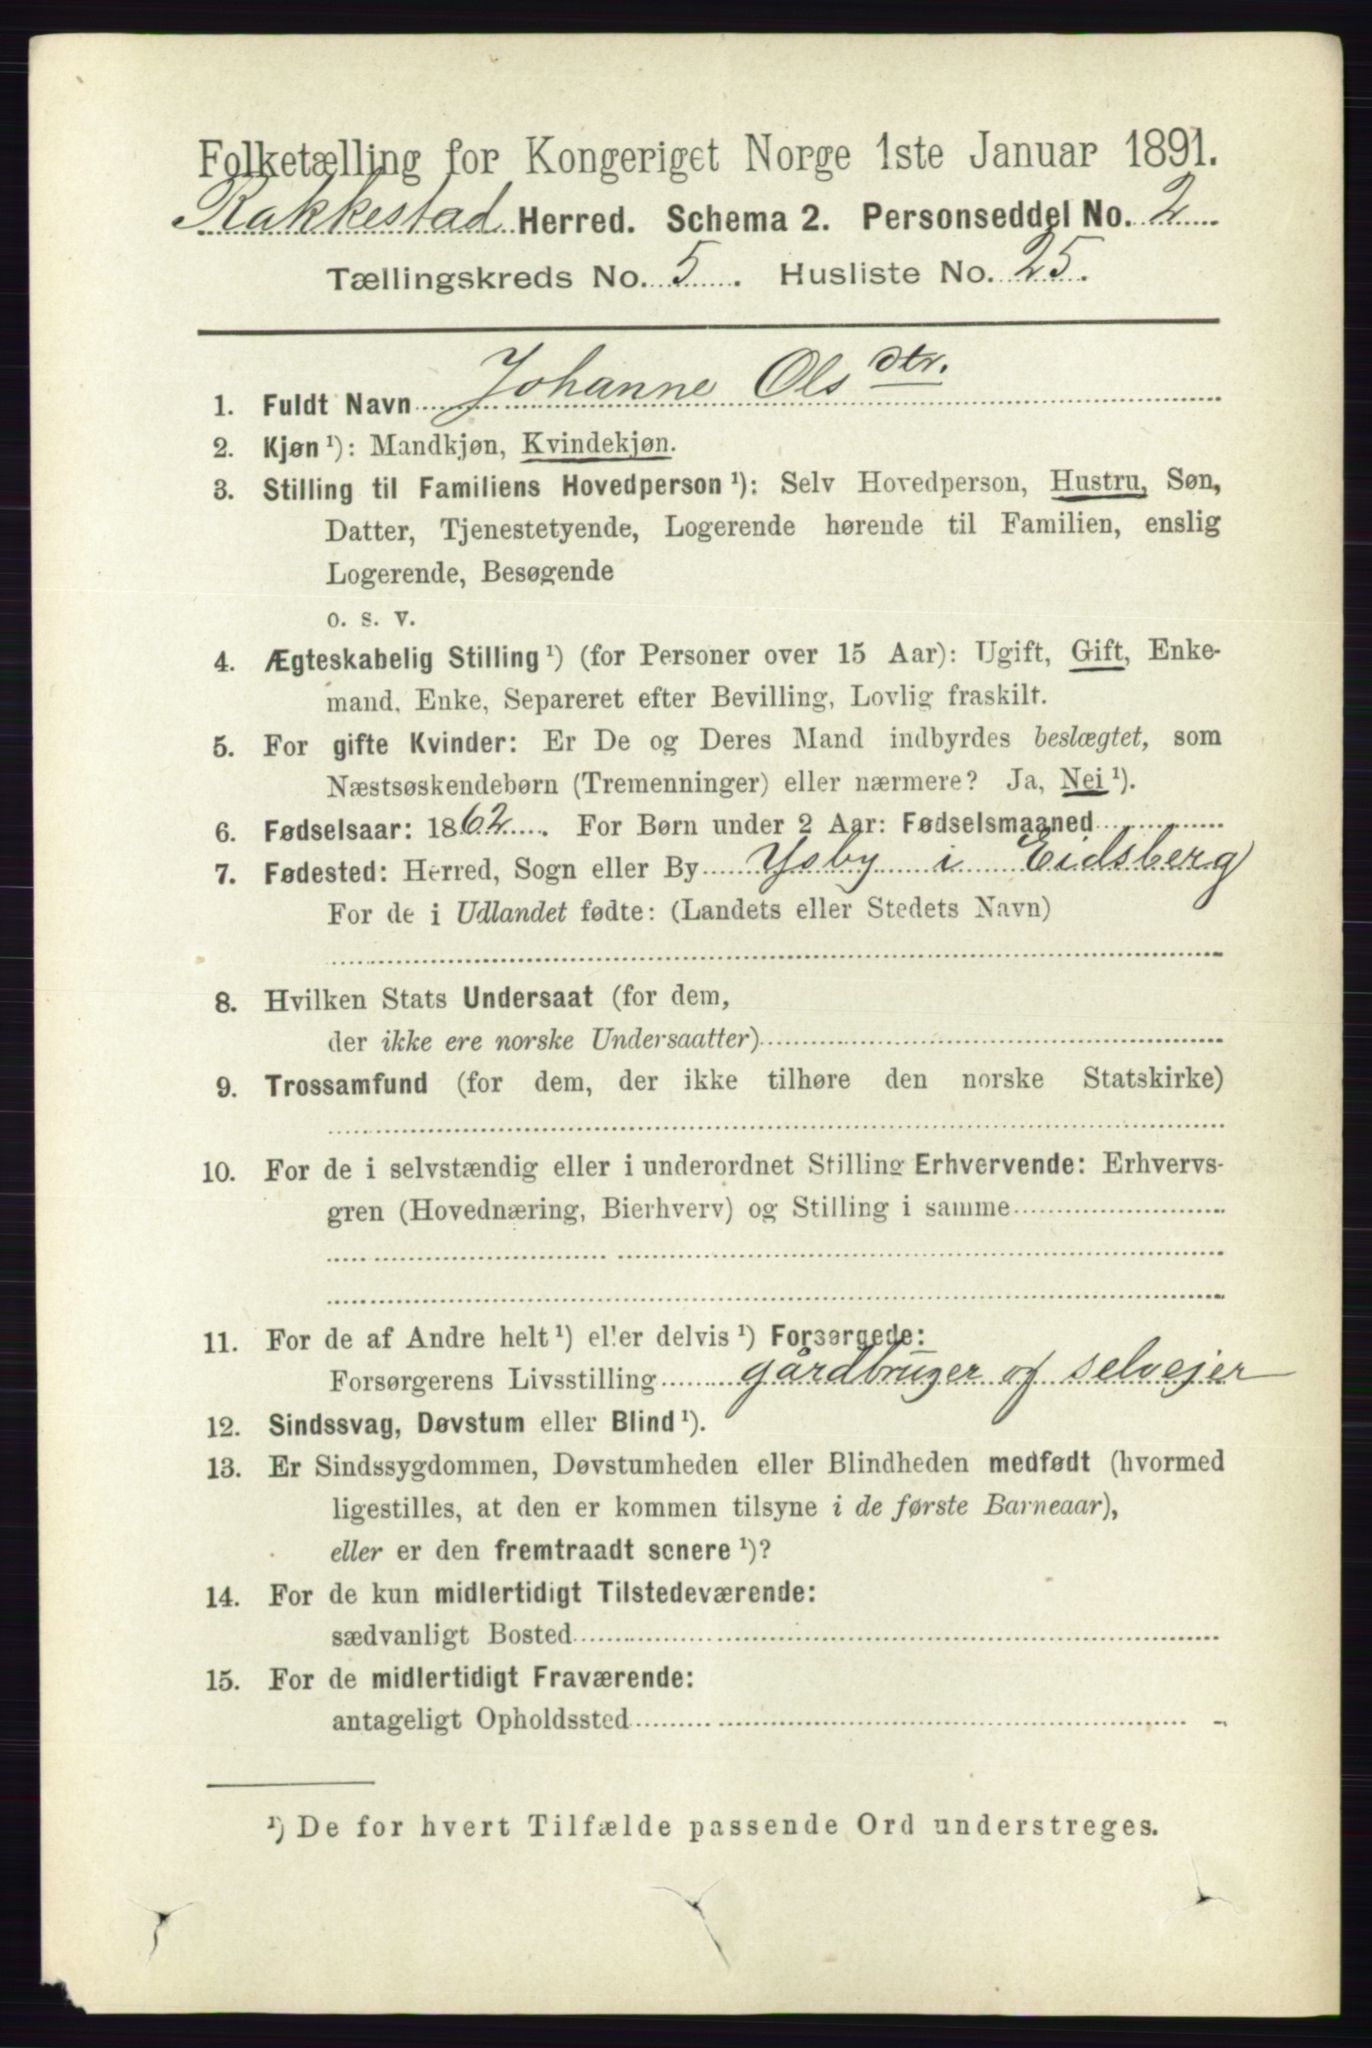 Folketælling for Kongeriget Norge 1ste Januar 1891.
Rakkestad Herred. Schema 2. Personseddel No. 2
Tællingskreds No. 5. Husliste No. 25.
1. Fuldt Navn Johanne Ols dtr.
2. Kjøn ¹): Mandkjøn, Kvindekjøn.
3. Stilling til Familiens Hovedperson ¹): Selv Hovedperson, Hustru, Søn,
Datter, Tjenestetyende, Logerende hørende til Familien, enslig
Logerende, Besøgende
o. s. v.
4. Ægteskabelig Stilling ¹) (for Personer over 15 Aar): Ugift, Gift, Enke-
mand, Enke, Separeret efter Bevilling, Lovlig fraskilt.
5. For gifte Kvinder: Er De og Deres Mand indbyrdes beslægtet, som
Næstsøskendebørn (Tremenninger) eller nærmere? Ja, Nei ¹).
6. Fødselsaar: 1862. For Børn under 2 Aar: Fødselsmaaned
7. Fødested: Herred, Sogn eller By Ysby i Eidsberg
For de i Udlandet fødte: (Landets eller Stedets Navn)
8. Hvilken Stats Undersaat (for dem,
der ikke ere norske Undersaatter)
9. Trossamfund (for dem, der ikke tilhøre den norske Statskirke)
10. For de i selvstændig eller i underordnet Stilling Erhvervende: Erhvervs-
gren (Hovednæring, Bierhverv) og Stilling i samme
11. For de af Andre helt ¹) eller delvis ¹) Forsørgede:
Forsørgerens Livsstilling gårdbruger og selvejer
12. Sindssvag, Døvstum eller Blind ¹).
13. Er Sindssygdommen, Døvstumheden eller Blindheden medfødt (hvormed
ligestilles, at den er kommen tilsyne i de første Barneaar),
eller er den fremtraadt senere ¹)?
14. For de kun midlertidigt Tilstedeværende:
sædvanligt Bosted
15. For de midlertidigt Fraværende:
antageligt Opholdssted
¹) De for hvert Tilfælde passende Ord understreges.